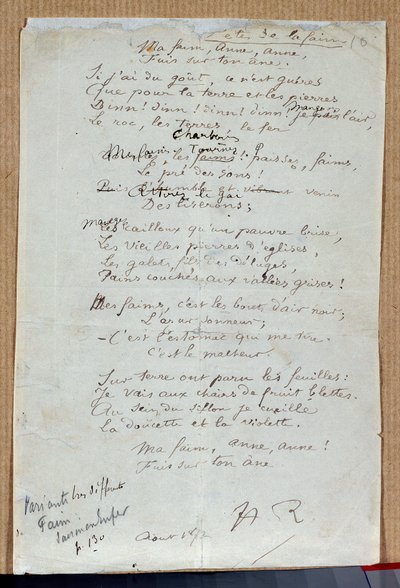 Fêtes de la faim
Ma faim, Anne, Anne,
Fuis sur ton âne.
Si j'ai du goût, ce n'est guères
Que pour la terre et les pierres
Dinn! dinn! dinn! dinn! je pais l'air,
mangeons
Le roc, les terres, le fer
Charbons
Mes faims, Tournez
les faims! paissez, faims,
Le pré des sons!
Puis l'humble et vibrant venin
Attirez le gai
Des liserons;
Mangez
Les cailloux qu'un pauvre brise,
Les vieilles pierres d'églises,
Les galets, fils des déluges,
Pains couchés aux vallées grises!
Mes faims, c'est les bouts d'air noir;
L'azur sonneur;
- C'est l'estomac qui me tire.
C'est le malheur.
Sur terre ont paru les feuilles:
Je vais aux chairs de fruit blettes.
Au sein du sillon je cueille
La doucette et la violette.
Ma faim, Anne, Anne!
Fuis sur ton âne
A R
Août 1872
Variante très différente
Faim
Saison en Enfer
p. 130